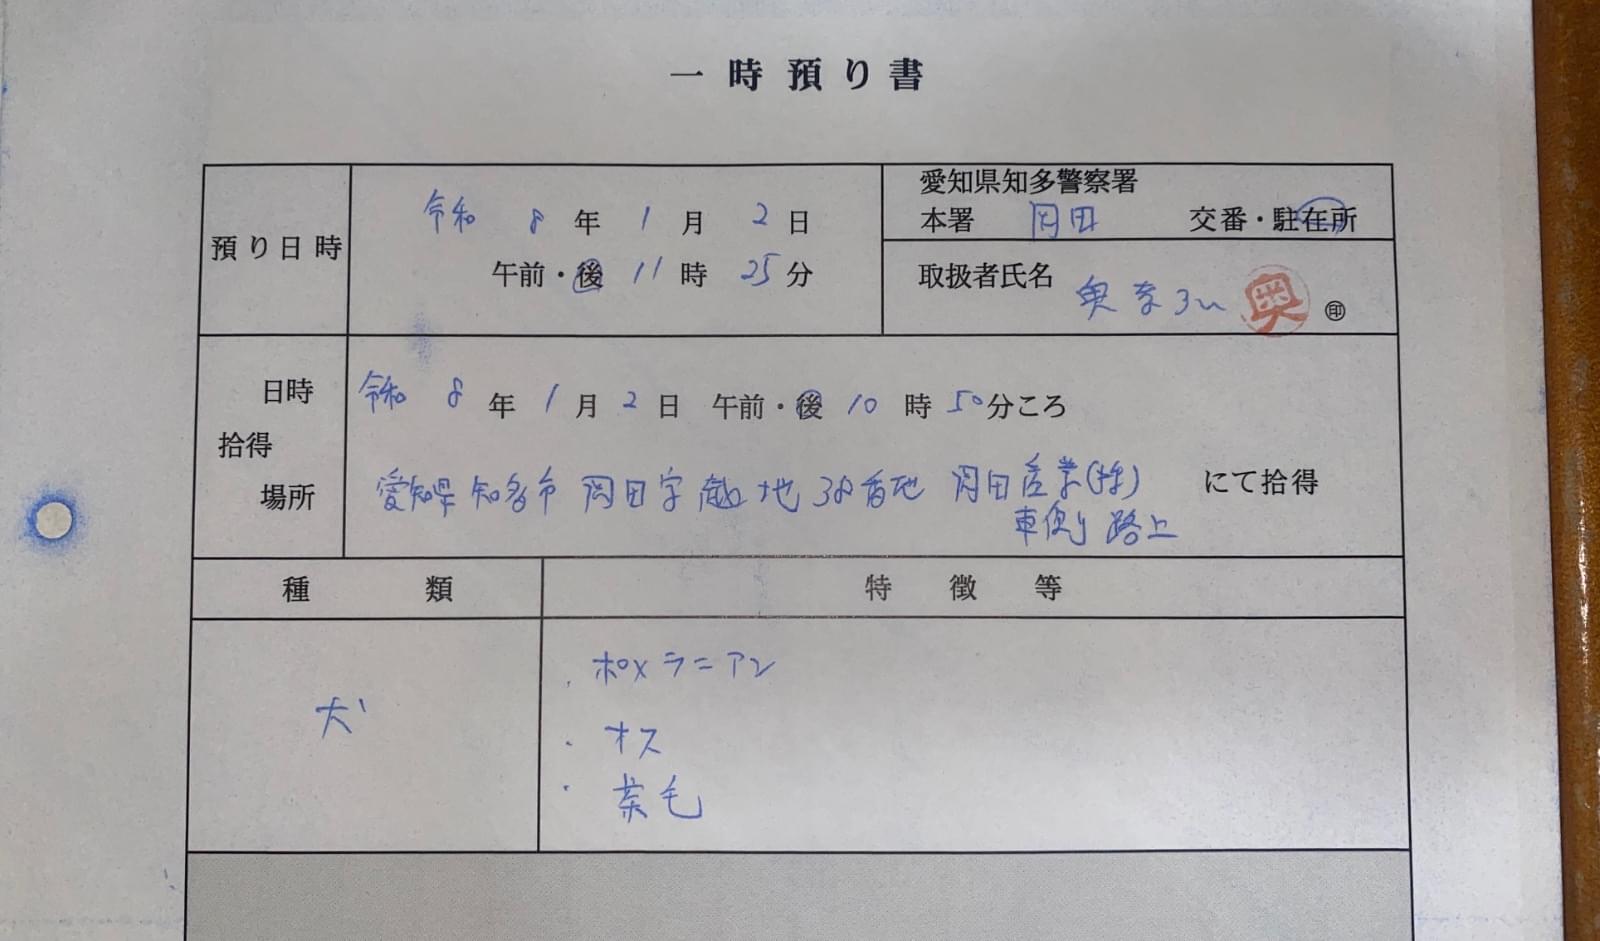 一時預り書
預り日時
令和 8 年 1 月 2 日
午前・後 11 時 25 分
愛知県知多警察署
本署 岡田 交番・駐在所
取扱者氏名
奥 奥 ㊞
拾得
日時
令和 8 年 1 月 2 日 午前・後 10 時 50 分ころ
場所
愛知県知多市岡田字越地39番地 岡田産業(株) にて拾得
車側路上
種類
特徴等
犬
・ポメラニアン
・オス
・茶毛